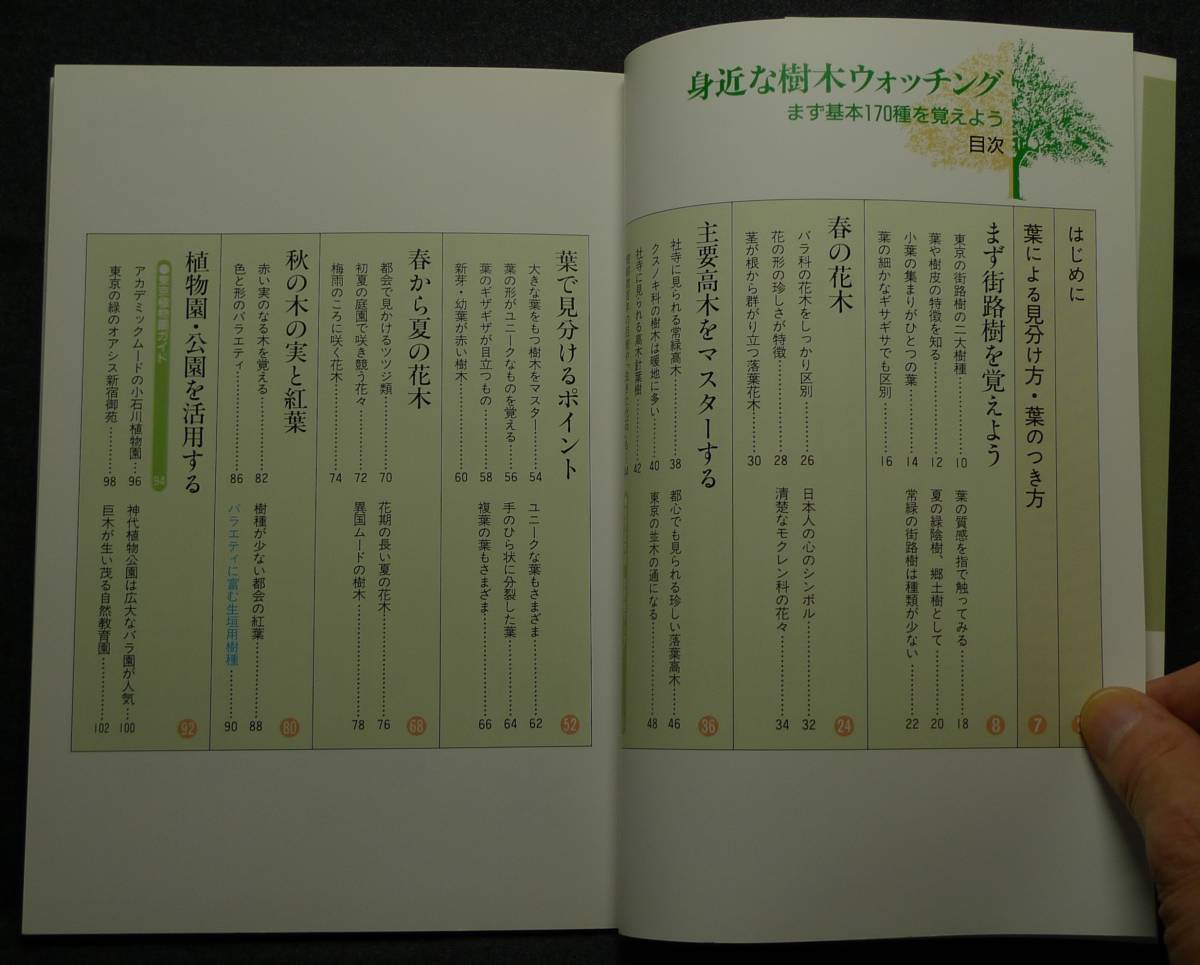 身近な樹木ウォッチング
まず基本170種を覚えよう
目次
はじめに
葉による見分け方・葉のつき方 7
まず街路樹を覚えよう 8
東京の街路樹の二大樹種 10
葉や樹皮の特徴を知る 12
小葉の集まりがひとつの葉 14
葉の細かなギザギザでも区別 16
葉の質感を指で触ってみる 18
夏の緑陰樹、郷土樹として 20
常緑の街路樹は種類が少ない 22
春の花木 24
バラ科の花木をしっかり区別 26
花の形の珍しさが特徴 28
茎が根から群がり立つ落葉花木 30
日本人の心のシンボル 32
清楚なモクレン科の花々 34
主要高木をマスターする 36
社寺に見られる常緑高木 38
クスノキ科の樹木は暖地に多い 40
社寺に見られる高木針葉樹 42
都心でも見られる珍しい落葉高木 46
東京の並木の通になる 48
葉で見分けるポイント 52
大きな葉をもつ樹木をマスター 54
葉の形がユニークなものを覚える 56
葉のギザギザが目立つもの 58
新芽・幼葉が赤い樹木 60
ユニークな葉もさまざま 62
手のひら状に分裂した葉 64
複葉の葉もさまざま 66
春から夏の花木 68
都会で見かけるツツジ類 70
初夏の庭園で咲き競う花々 72
梅雨のころに咲く花木 74
花期の長い夏の花木 76
異国ムードの樹木 78
秋の木の実と紅葉 80
赤い実のなる木を覚える 82
色と形のバラエティ 86
樹種が少ない都会の紅葉 88
バラエティに富む生垣用樹種 90
植物園・公園を活用する 92
●東京植物園ガイド 94
アカデミックムードの小石川植物園 96
東京の緑のオアシス新宿御苑 98
神代植物公園は広大なバラ園が人気 100
巨木が生い茂る自然教育園 102